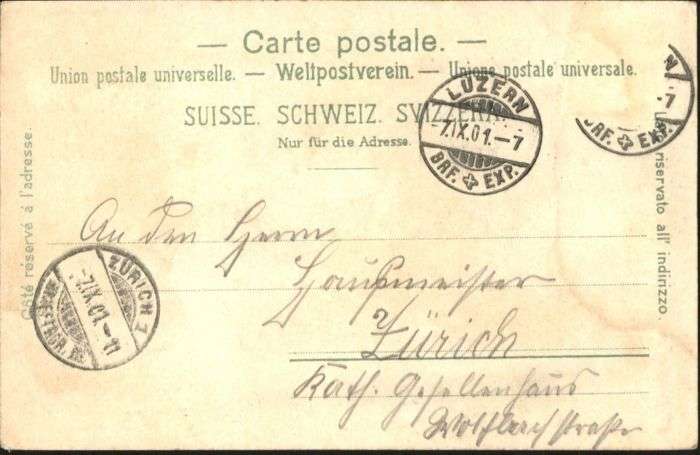 — Carte postale. —
Union postale universelle. — Weltpostverein. — Unione postale universale.
SUISSE. SCHWEIZ. SVIZZERA.
Nur für die Adresse.
Côté réservé à l'adresse.
riservato all' indirizzo.
LUZERN
-7.IX.01.-7
BRF. EXP.
N
-7
BRF. EXP.
ZÜRICH 1
-7.IX.01.-11
An den Herrn
Hausmeister
Zürich
Kath. Gesellenhaus
Wolfbachstraße